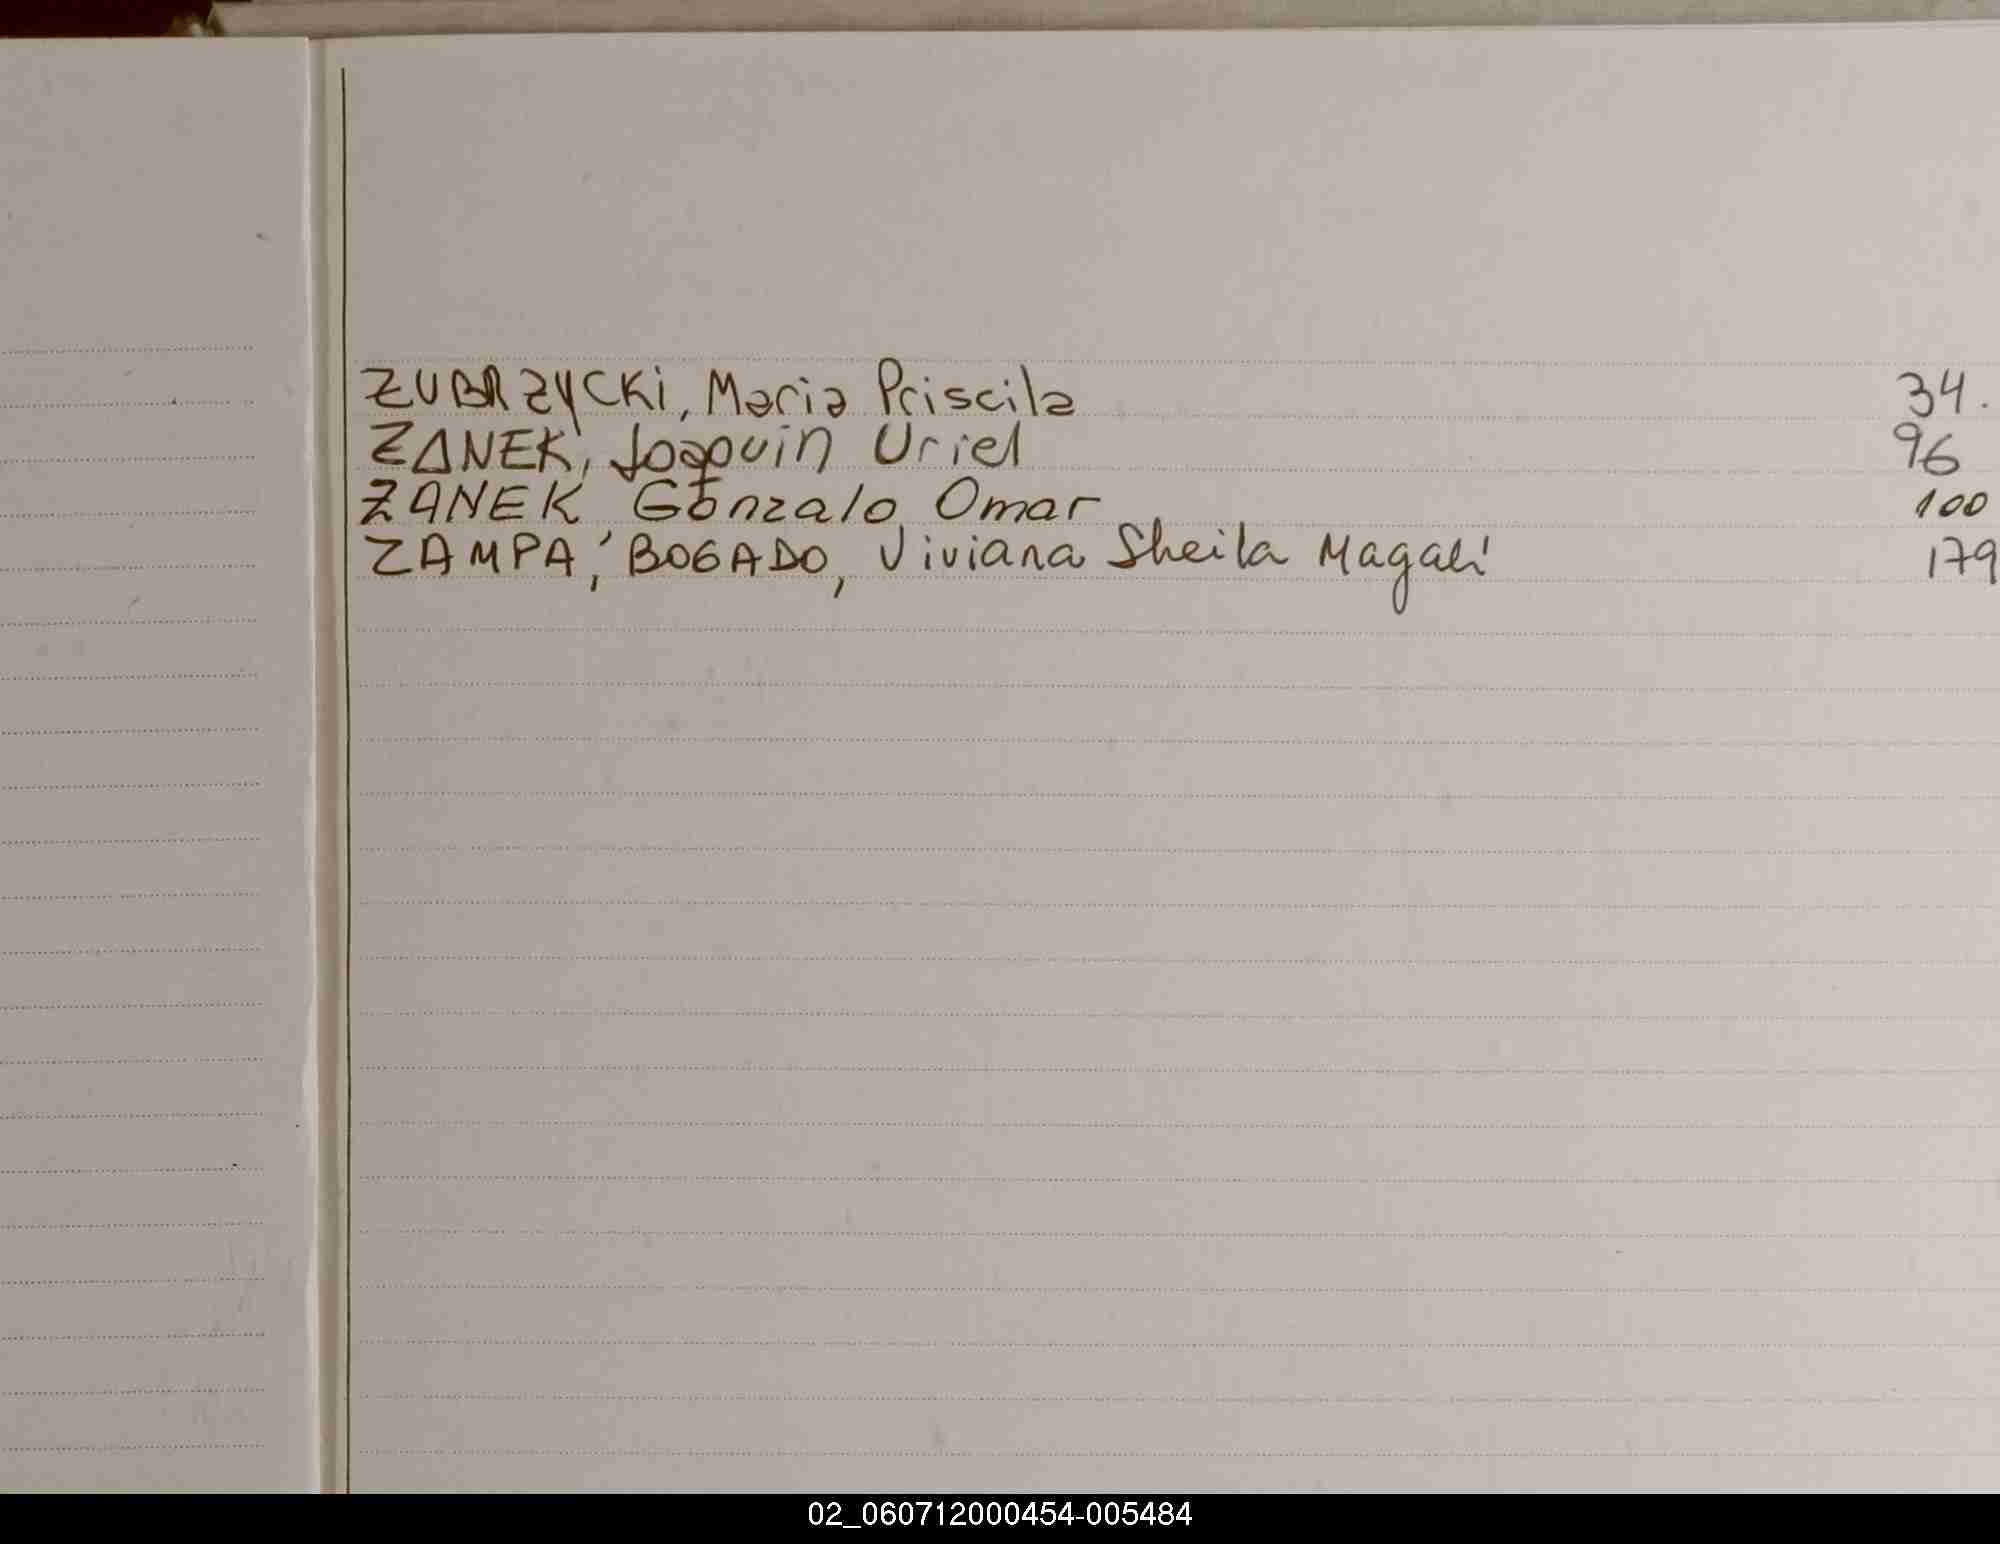 ZUBRZYCKi, Maria Priscila 34.
ZANEK, Joaquin Uriel 96
ZANEK Gonzalo Omar 100
ZAMPA, BOGADO, Viviana Sheila Magalí 179
02_060712000454-005484